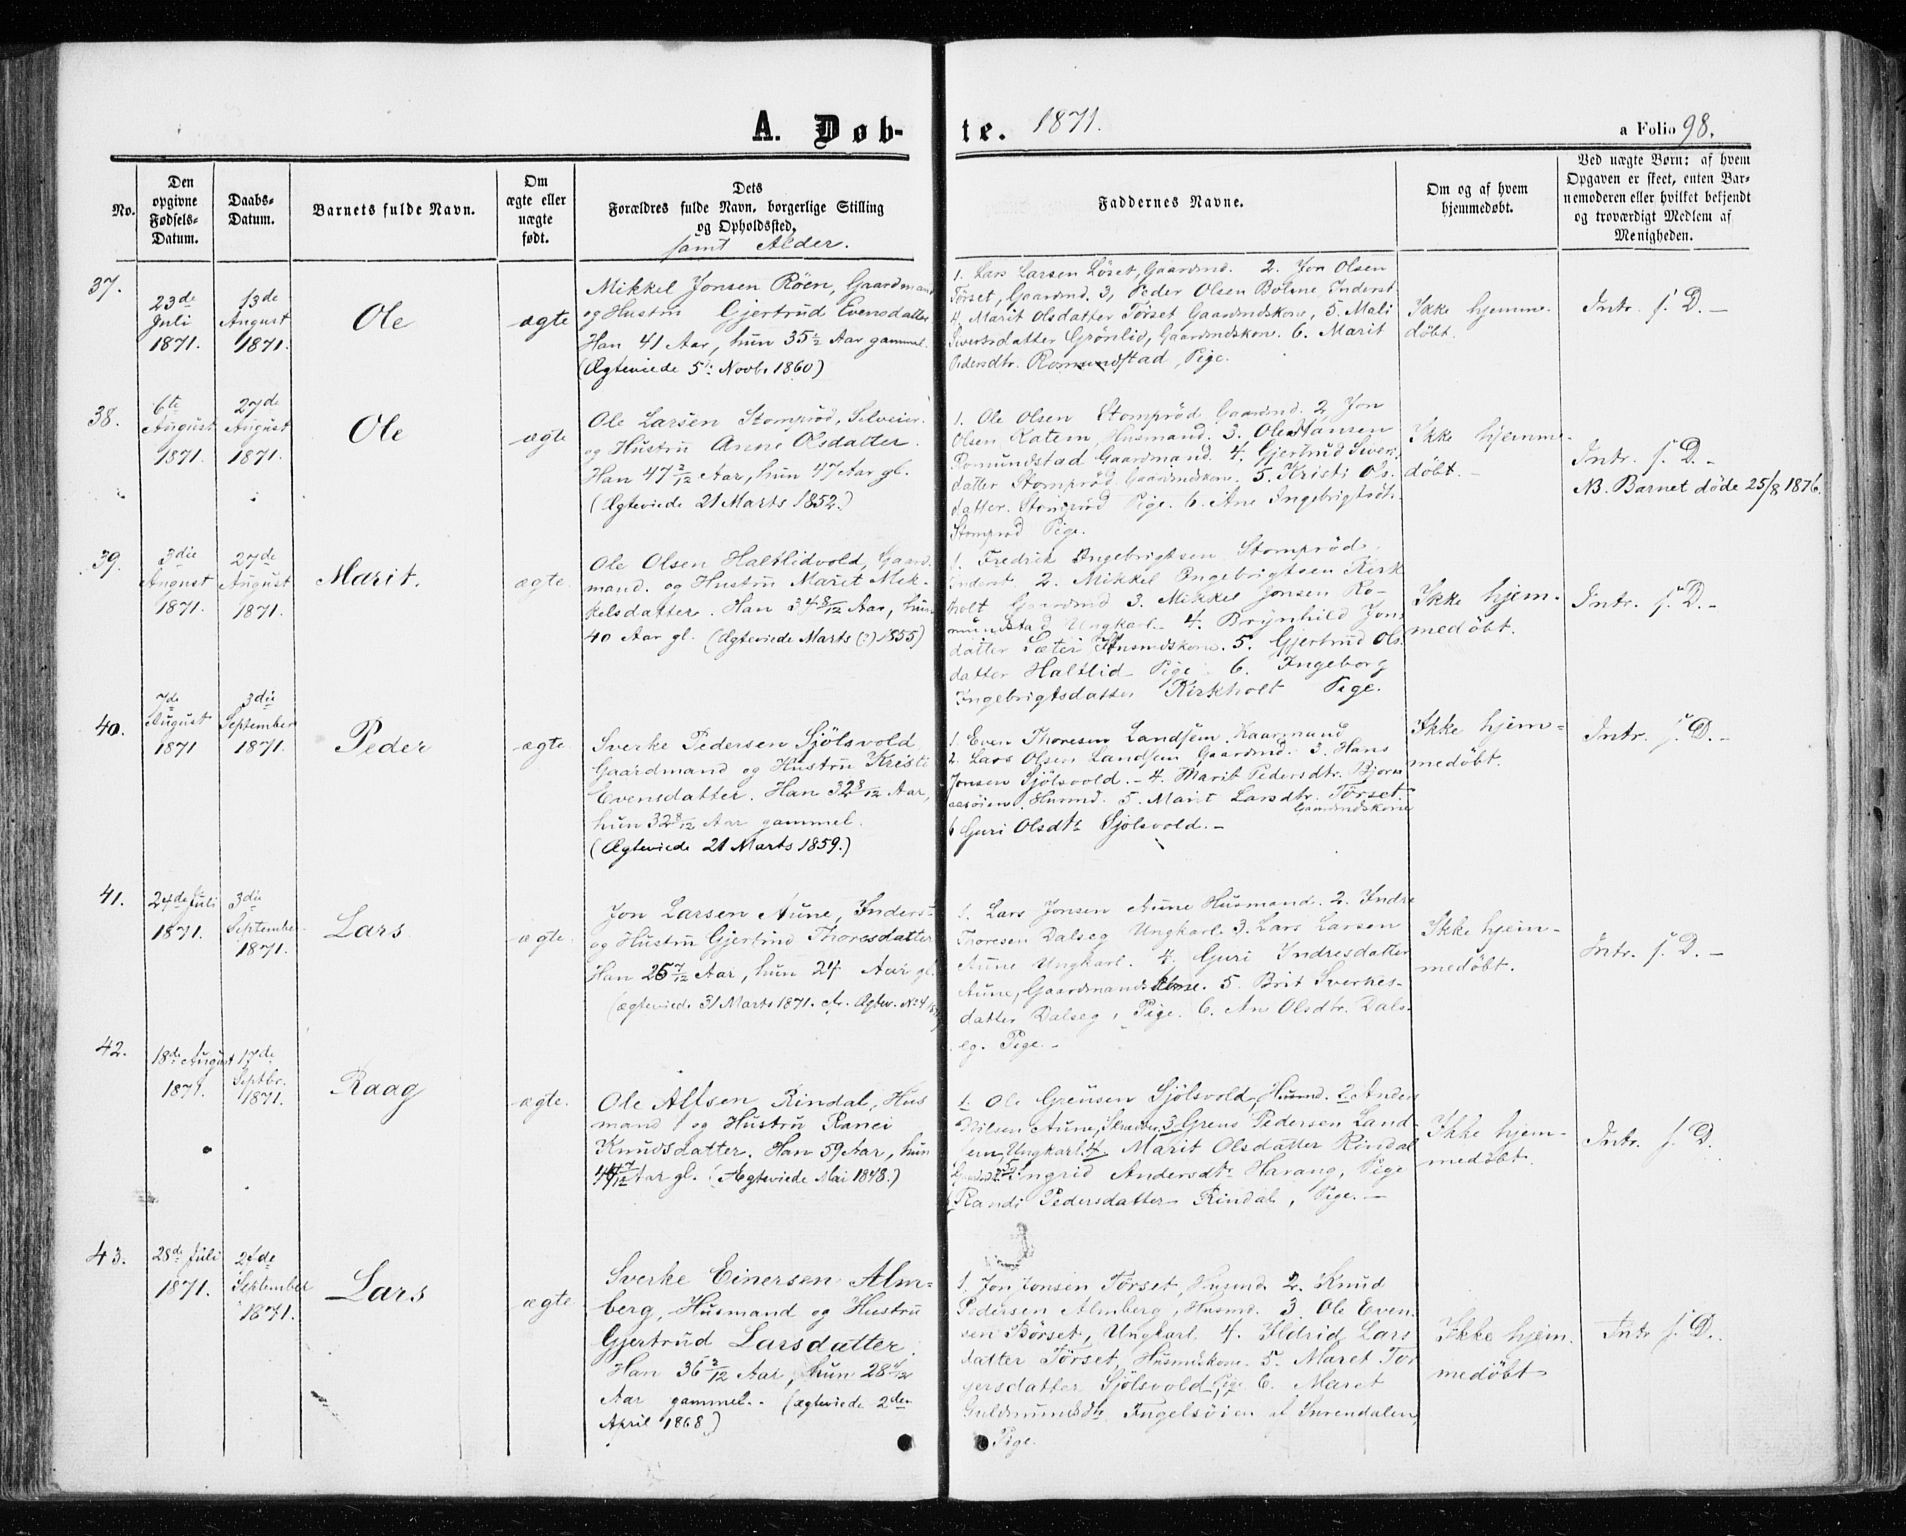 A. Døb-
te. 1871.
a Folio 98.
No.
Den
opgivne
Fødsels-
Datum.
Daabs-
Datum.
Barnets fulde Navn.
Om
ægte eller
uægte
født.
Dets
Forældres fulde Navn, borgerlige Stilling
og Opholdssted,
samt Alder.
Faddernes Navne.
Om og af hvem
hjemmedøbt.
Ved uægte Børn: af hvem
Opgaven er skeet, enten Bar-
nemoderen eller hvilket bekjendt
og troværdigt Medlem af
Menigheden.
37.
23de
Juli
1871.
13de
August
1871.
Ole
ægte
Mikkel Jonsen Röen, Gaardmand
og Hustru Gjertrud Evensdatter
Han 41 Aar, hun 35½ Aar gammel.
(Ægteviede 5te Novb. 1860)
1. Lars Larsen Löset, Gaardmd. 2. Jon Olsen
Törset, Gaardmd. 3, Peder Olsen Bolme, Inderst
4. Marit Olsdatter Törset Gaardmdskone, 5. Mali
Sivertsdatter Grönlid, Gaardmdskone. 6. Marit
Pedersdtr. Romundstad, Pige.
Ikke hjemme-
døbt.
Intr. f. D. -
38.
6te
August
1871.
27de
August
1871.
Ole
ægte
Ole Larsen Stomprød, Selveier.
og Hustru Anne Olsdatter.
Han 47 2/12 Aar, hun 47 Aar gl.
(Ægteviede 21 Marts 1852.)
1. Ole Olsen Stomprød Gaardmd. 2, Jon
Olsen Katem, Husmand. 3. Ole Hansen
Romundstad Gaardmand. 4. Gjertrud Siverts-
datter Stomprød Gaardmdskone. 5. Kristi Ols-
datter. Stomprød Pige. 6. Ane Ingebrigtsdt.
Stomprød Pige.
Ikke hjemme-
døbt. -
Intr. f. D. -
NB. Barnet døde 25/8 1876.
39.
3die
August
1871.
27de
August
1871.
Marit.
ægte.
Ole Olsen Haltlidvold, Gaard-
mand. og Hustru Marit Mik-
kelsdatter. Han 34 8/12 Aar, hun
40 Aar gl. (Ægteviede Marts (?) 1855)
1. Fredrik Ingebrigtsen Stomprød,
Inderst, 2. Mikkel Ingebrigtsen Kirk
holt Gaardmd 3. Mikkel Jonsen Ro-
mundstad Ungkarl. 4. Brynhild Jon
datter Sæter Husmdskone. 5. Gjertrud Ols-
datter Haltlid Pige. 6. Ingeborg
Ingebrigtsdatter Kirkholt Pige.
Ikke hjem-
medøbt.
Intr. f. D. -
40.
7de
August
1871
3die
September
1871.
Peder
ægte.
Sverke Pedersen Sjölsvold
Gaardmand og Hustru Kristi
Evensdatter. Han 32 8/12 Aar,
hun 32 8/12 Aar gammel.
(Ægteviede 21 Marts 1859.)
1 Even Thoresen Landsem, Kaarmand
2. Lars Olsen Landsem Gaardmd. 3. Hans
Jonsen Sjölsvold. - 4. Marit Pedersdtr. Bjørn
aasøien. Husmd. 5. Marit Larsdtr. Törset
Gaardmdskone
6 Guri Olsdtr Sjölsvold. -
Ikke hjem-
medøbt.
Intr. f. D. -
41.
24de Juli
1871.
3die
September
1871.
Lars
ægte.
Jon Larsen Aune, Inderst
og Hustru Gjertrud Thoresdatter
Han 25 7/12 Aar, hun 24 Aar gl.
(ægteviede 31 Marts 1871. cfr. Ægtev. No 4
1. Lars Jonsen Aune Husmand. 2. Indre
Thoresen Dalseg Ungkarl. 3. Lars Larsen
Aune Ungkarl. 4. Guri Indresdatter
Aune, Gaardmandskone. 5. Brit Sverkes-
datter Dalseg, Pige. 6. Ane Olsdtr. Dals-
eg. Pige. -
Ikke hjem-
medøbt.
Intr. f. D. -
42.
18de August
1871.
17de
Septbr.
1871.
Raag
ægte.
Ole Allsen Rindal, Hus
mand, og Hustru Ranei
Knudsdatter. Han 59 Aar, hun
Aar gl. (Ægteviede Mai 1848.)
1. Ole Grensen Sjölsvold, Husmd. 2 Anders
Nilsen Aune, 3 Grens Pedersen Land-
sem, Ungkarl. 4. Marit Olsdatter Rindal
5. Ingrid Andersdtr Harang, Pige
6 Randi Pedersdatter Rindal, Pige. -
Ikke hjem-
medøbt.
Intr. f. D.
43.
28de Juli
1871.
24de
September
1871.
Lars
ægte
Sverke Einersen Alm-
berg, Husmand og Hustru
Gjertrud Larsdatter.
Han 36 3/12 Aar, hun 28 4/12
Aar gammel. (ægteviede 2den
April 1868.)
1. Jon Jonsen Törset, Husmd. 2. Knud
Pedersen Almberg, Husmd. 3 Ole Even
sen Börset, Ungkarl 4. Ildrid Lars
datter Törset, Husmdskone. 5. Maret Tor
gersdatter Sjölsvold, Pige 6. Maret
Guldmundsdtr Ingelsöien af Surendalen,
Pige.
Ikke hjem
medøbt
Intr f. D.